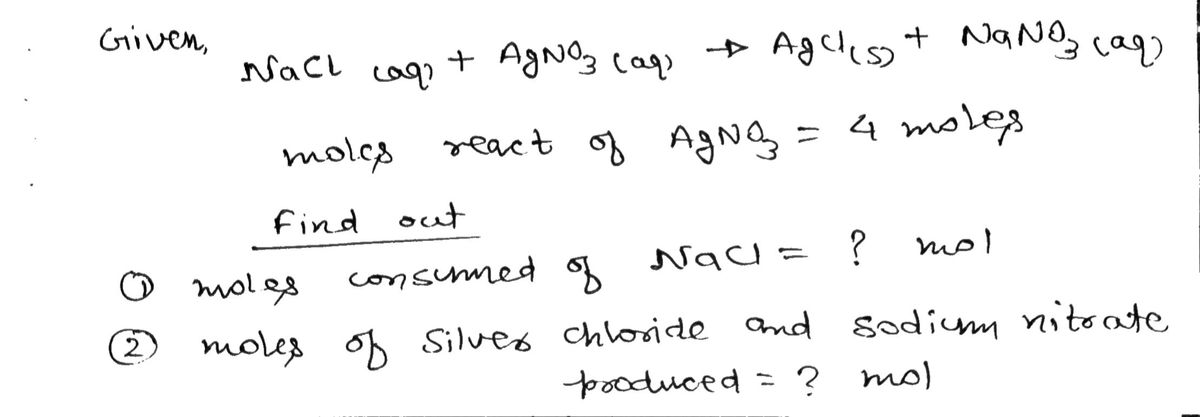 Given,
NaCl (aq) + AgNO₃ (aq) → AgCl(s) + NaNO₃ (aq)
moles react of AgNO₃ = 4 moles
Find out
① moles consumed of NaCl = ? mol
② moles of Silver chloride and sodium nitrate
produced = ? mol